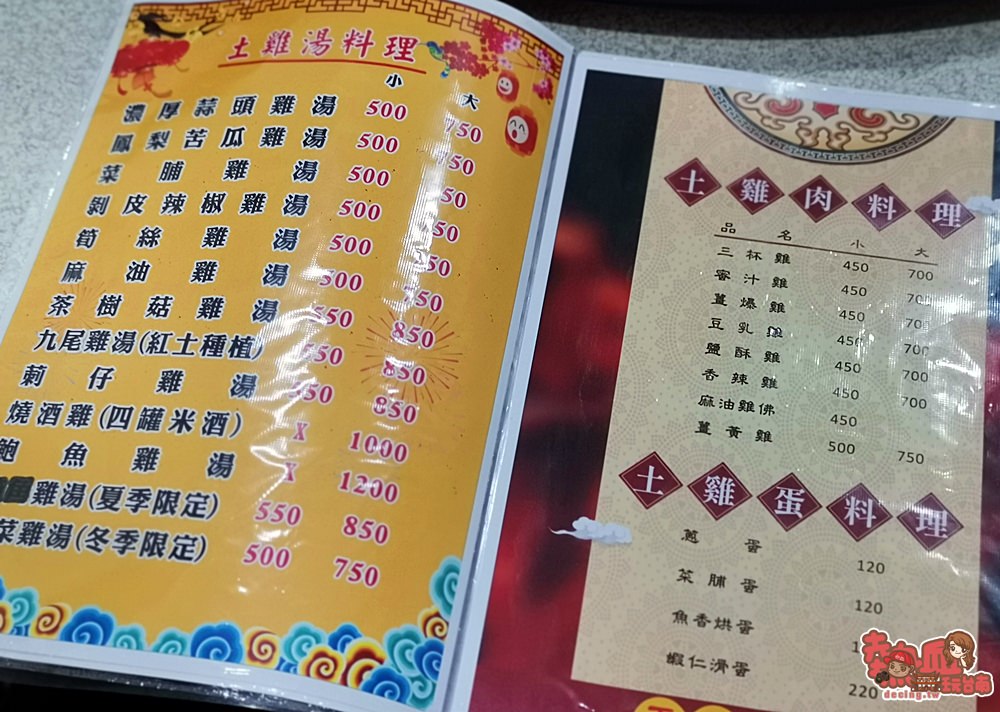 土雞湯料理
小 大
濃厚蒜頭雞湯 500 750
鳳梨苦瓜雞湯 500 750
菜脯雞湯 500 50
剝皮辣椒雞湯 500 50
筍絲雞湯 500 50
麻油雞湯 500 750
茶樹菇雞湯 550 850
九尾雞湯(紅土種植) 550 850
莿仔雞湯 550 850
燒酒雞(四罐米酒) X 1000
鮑魚雞湯 X 1200
雞湯(夏季限定) 550 850
菜雞湯(冬季限定) 500 750
土雞肉料理
品名 小 大
三杯雞 450 700
蜜汁雞 450 700
薑爆雞 450 700
豆乳雞 450 700
鹽酥雞 450 700
香辣雞 450 700
麻油雞佛 450
薑黃雞 500 750
土雞蛋料理
蔥蛋 120
菜脯蛋 120
魚香烘蛋
蝦仁滑蛋 220
玩台南
decing.tw